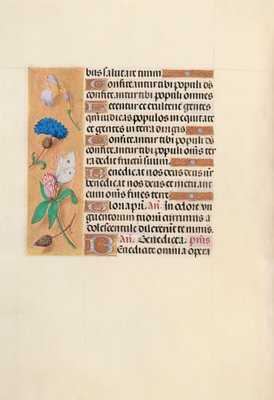 bus salutare tuum.
Confiteantur tibi populi ds
confiteantur tibi populi omnes
Letentur et exultent gentes
qm iudicas populos in equitate
et gentes in terra dirigis
Confiteantur tibi populi ds
confiteantur tibi populi oms ter
ra dedit fructu suum.
Benedicat nos deus deus nr
benedicat nos deus et metuant
eum oms fines terre
Gloria pri. an. In odore vn
guentorum tuoru currimus a
dolescentule dilexerut te nimis.
An. Benedicta. pms
Benedicite omnia opera